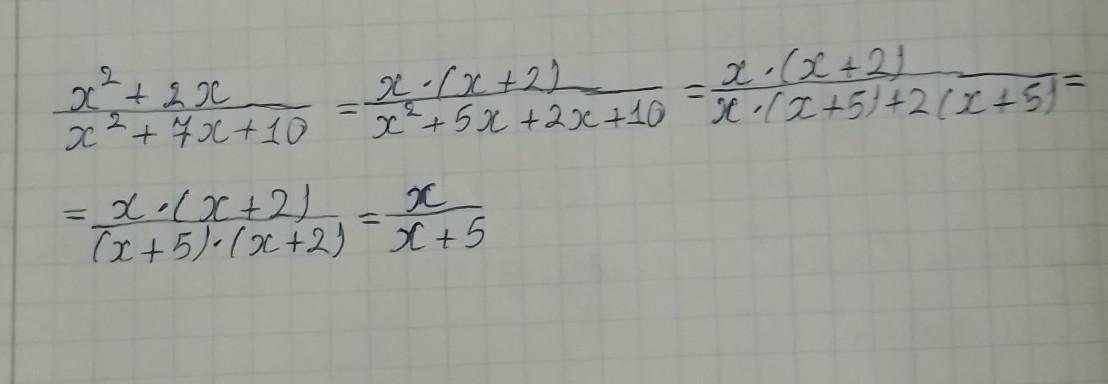 (x² + 2x)/(x² + 7x + 10) = (x · (x + 2))/(x² + 5x + 2x + 10) = (x · (x + 2))/(x · (x + 5) + 2(x + 5)) =
= (x · (x + 2))/((x + 5) · (x + 2)) = x/(x + 5)